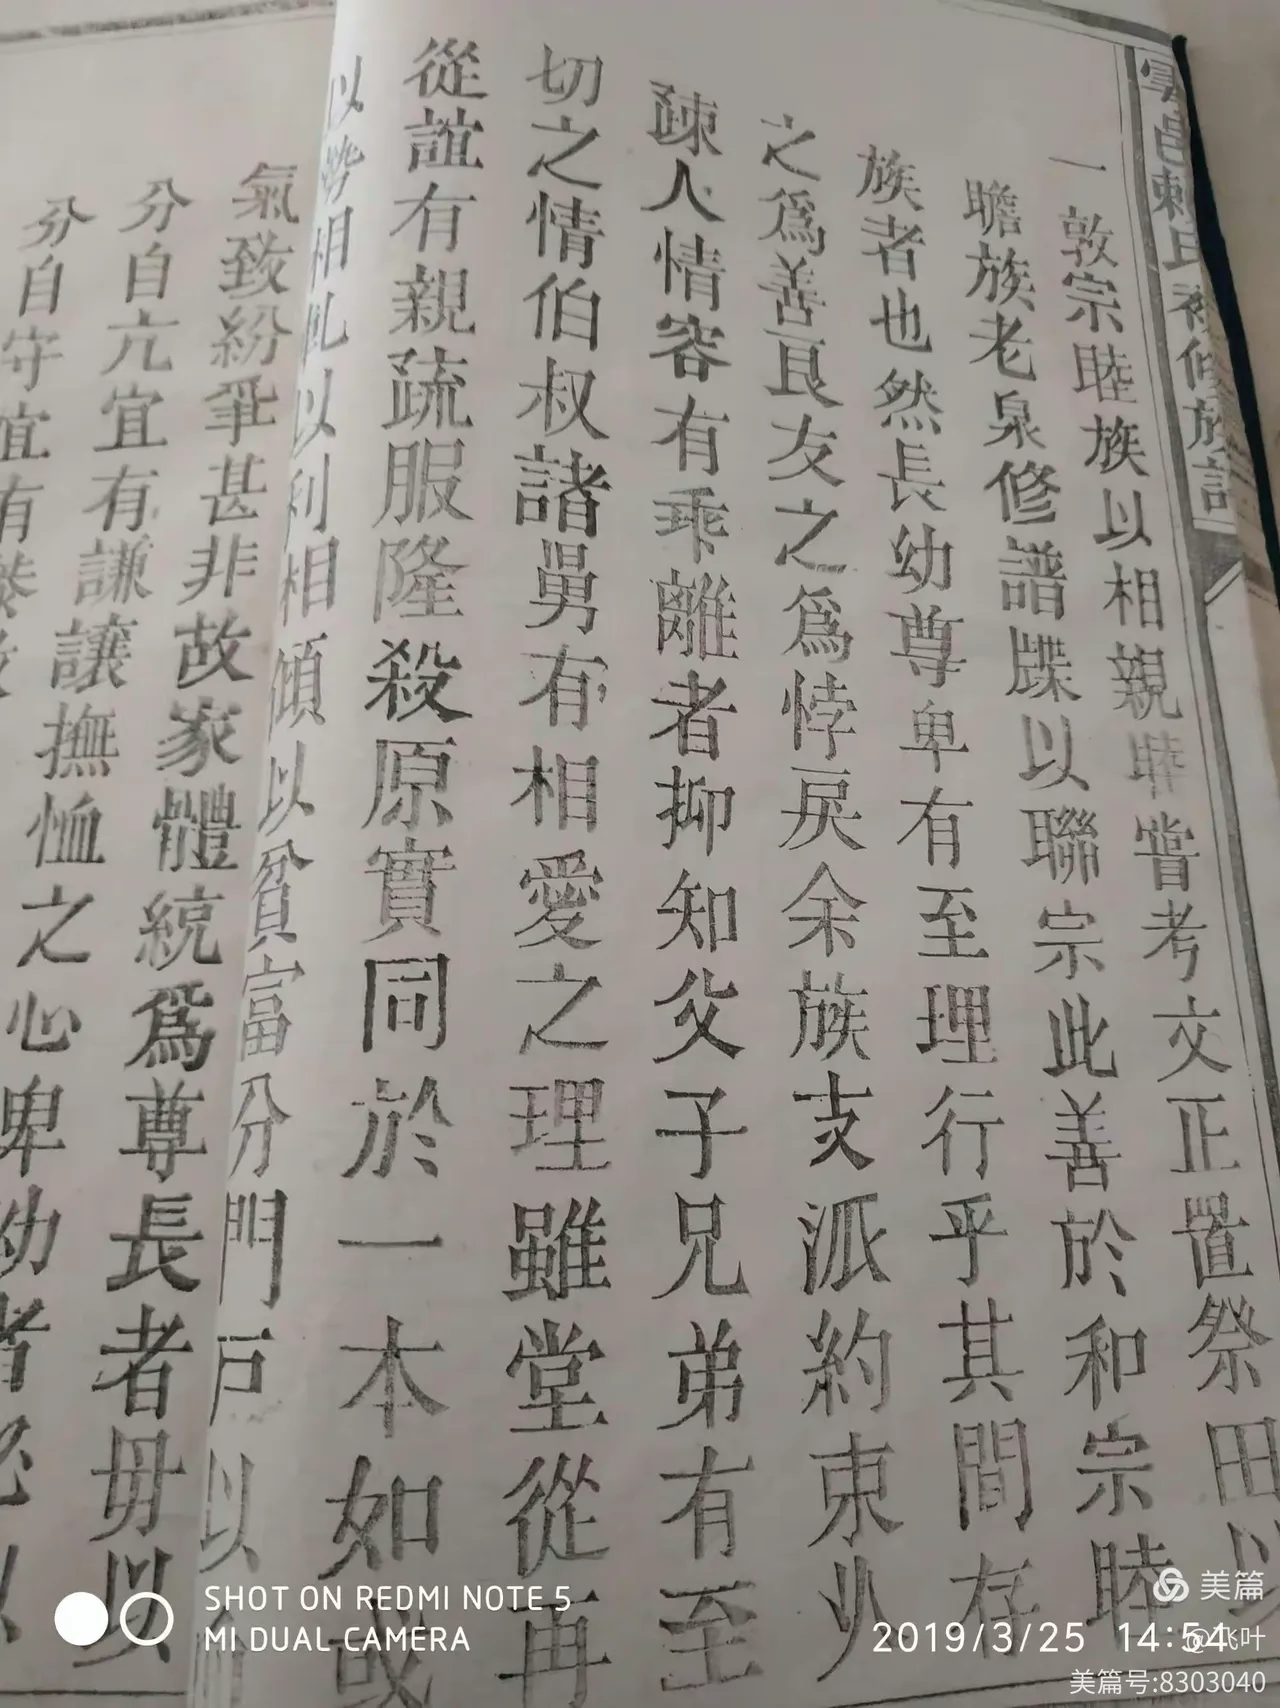 雩邑賴氏複修族譜
一敦宗睦族以相親睦嘗考交正置祭田以
瞻族老泉修譜牒以聯宗此善於和宗睦
族者也然長幼尊卑有至理行乎其間存
之爲善良友之爲悖戾余族支派約束
疎人情容有乖離者抑知父子兄弟有至
切之情伯叔諸舅有相愛之理雖堂從再
從誼有親疏服隆殺原實同於一本如或
以勢相軋以利相傾以貧富分門戸以
氣致紛爭甚非故家體統爲尊長者毋以
分自亢宜有謙讓撫恤之心卑幼者
分自守宜有
SHOT ON REDMI NOTE 5
MI DUAL CAMERA
2019/3/25 14:54
美篇
@飞叶
美篇号:8303040